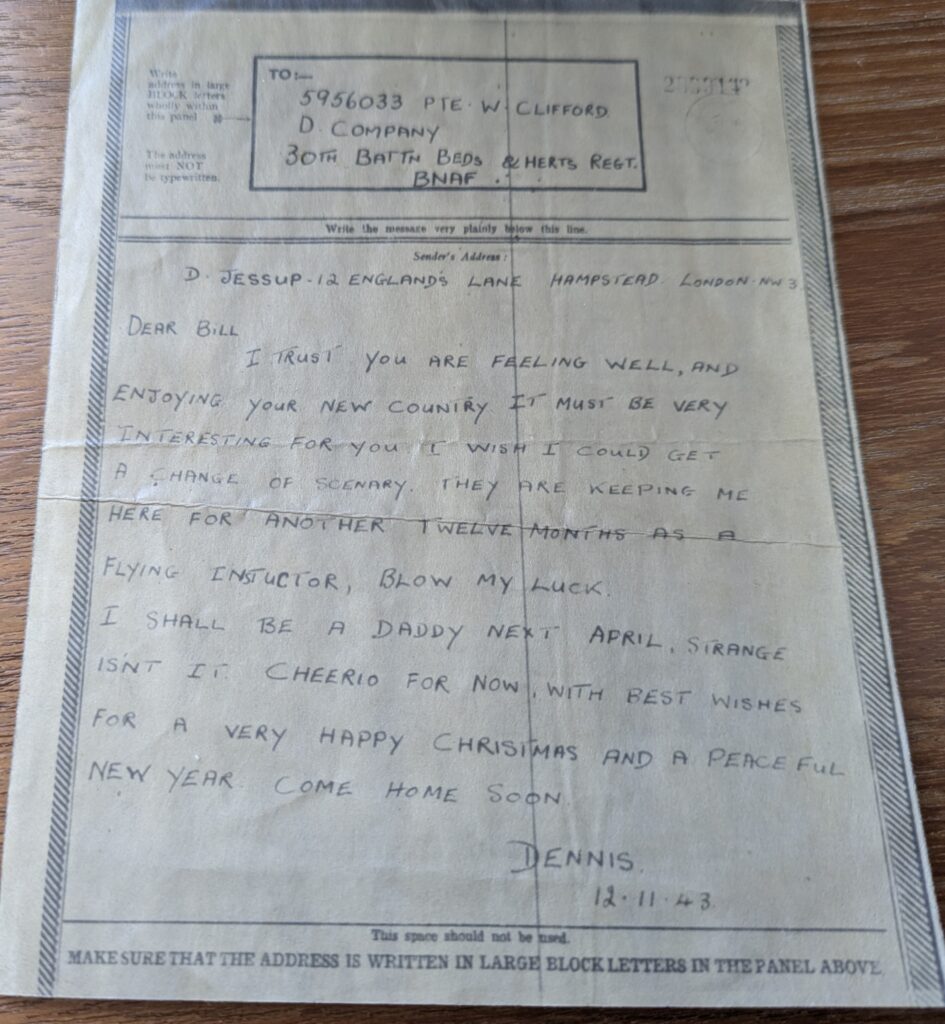 Write
address in large
BLOCK letters
wholly within
this panel
The address
must NOT
be typewritten.
TO:—
5956033 PTE. W. CLIFFORD
D. COMPANY
30TH BATTN BEDS & HERTS REGT.
BNAF.
Write the message very plainly below this line.
Sender's Address:
D. JESSUP. 12 ENGLANDS LANE HAMPSTEAD. LONDON. NW3
DEAR BILL
I TRUST YOU ARE FEELING WELL, AND
ENJOYING YOUR NEW COUNTRY IT MUST BE VERY
INTERESTING FOR YOU I WISH I COULD GET
A CHANGE OF SCENARY. THEY ARE KEEPING ME
HERE FOR ANOTHER TWELVE MONTHS AS A
FLYING INSTUCTOR, BLOW MY LUCK.
I SHALL BE A DADDY NEXT APRIL, STRANGE
ISN'T IT. CHEERIO FOR NOW, WITH BEST WISHES
FOR A VERY HAPPY CHRISTMAS AND A PEACEFUL
NEW YEAR. COME HOME SOON.
DENNIS.
12.11.43.
This space should not be used.
MAKE SURE THAT THE ADDRESS IS WRITTEN IN LARGE BLOCK LETTERS IN THE PANEL ABOVE